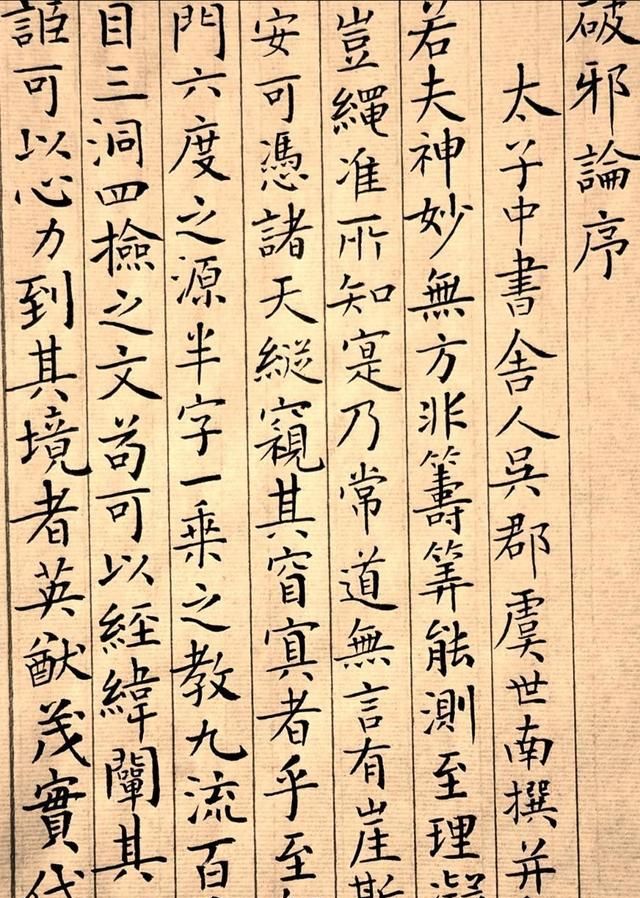 破邪論序
太子中書舍人吳郡虞世南撰并
若夫神妙無方非籌筭能測至理凝
豈繩准所知寔乃常道無言有崖斯
安可憑諸天縱窺其窅冥者乎至
門六度之源半字一乘之教九流百
目三洞四檢之文苟可以經緯闡其
詎可以心力到其境者英猷茂實代